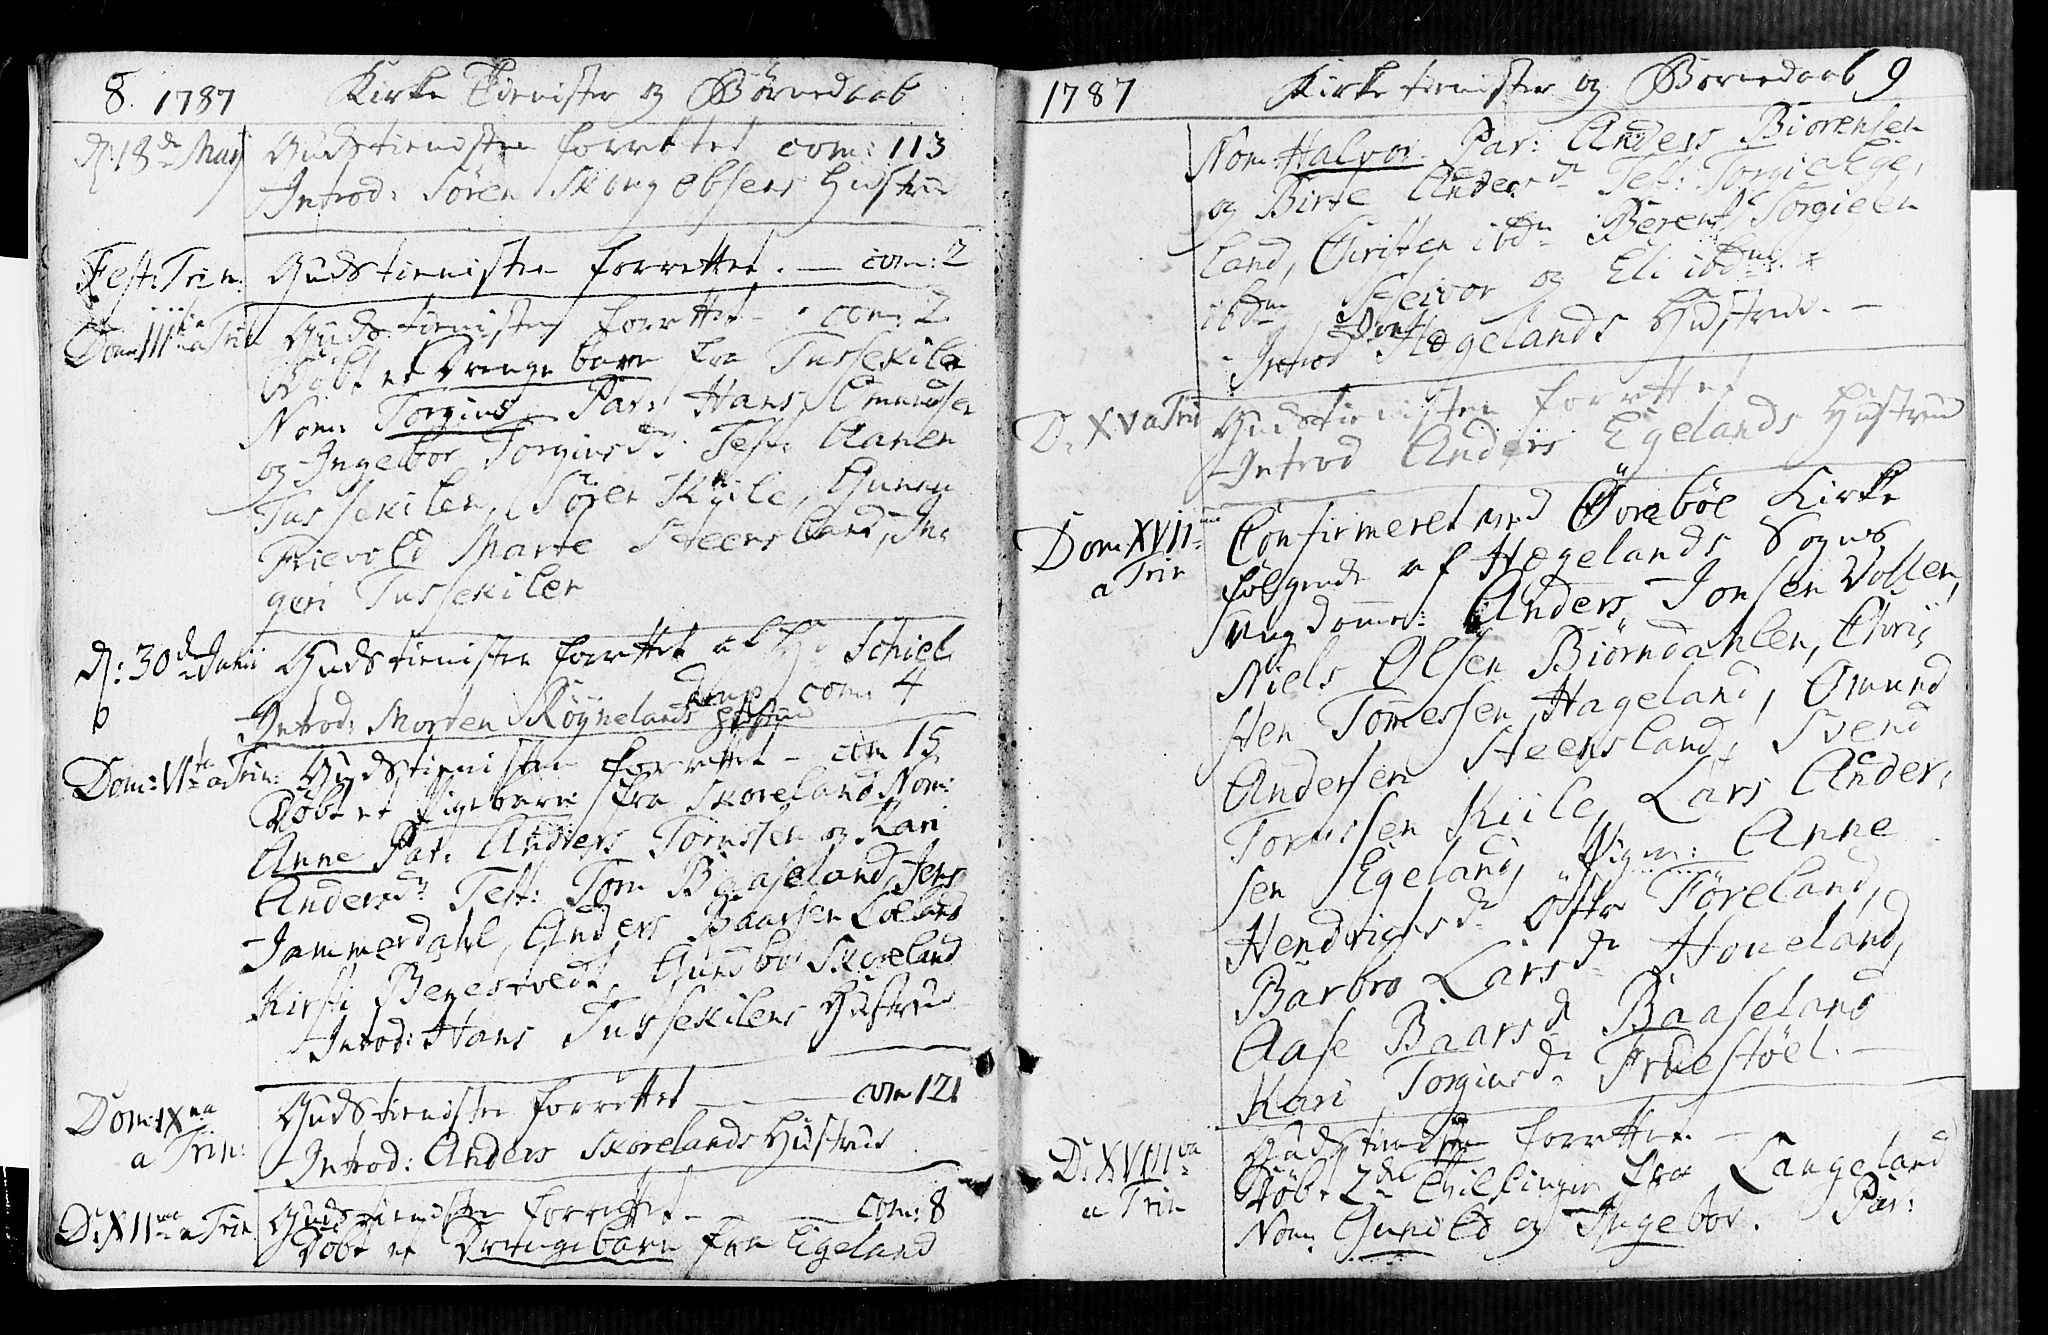 8. 1787 Kirke Tienister og Børnedaab
d: 18de Maij Gudstienisten forrettet com: 113
Introd: Søren Skougebsens Hustrue
Fest: Trin: Gudstienisten forrettet. — com: 2
Dom: III tia a Trin Gudstienisten forrettet - com: 2
Døbt et Drengebarn fra Tussekilen
Nom: Torgius. Par: Hans Omundsen
og Ingebor Torgiusd: Test: Aanen
Tussekilen, Søren Kiile, Gunen
Frievold Marte Steensland, In=
geri Tussekilen
d: 30d Juni Gudstienisten forrettet af Hr Schiel
drup com: 4
Introd: Morten Røynelands Hustrue
Dom: VI ta a Trin: Gudstienisten forrettet - com 15
Døbt et Pigebarn fra Skoreland Nom:
Anne Par: Anders Tomssen og Kari
Andersdr Test: Tom Baaseland, Jens
Jammerdahl, Anders Baarsen
Kirsti Begestvedt, Gunbor Skoreland
Introd: Hans Tussekilens Hustrue
Dom: IX na a Trin: Gudstienisten forrettet — — com 121
Introd: Anders Skorelands Hustrue
D: XII ma a Trin Gudstienisten forrettet — com: 8
Døbt et Drengebarn fra Egeland
1787 Kirketienister og Børnedaab 9
Nom: Halvor Par: Anders Biørensen
og Birte Andersdr Test: Torgie Ege=
land, Christen ibdm Berent Torgiesen
ibdm Steivor og Eli ibdm
Introd Hægelands Hustrue. —
D. XV a Trin Gudstienisten forrettet
Introd Anders Egelands Hustrue
Dom XVII ma a Trin Confirmeret ved Øvrebøe Kirke
følgende af Hægelands Sogns
Ungdomme: Anders Jonsen Vollen,
Niels Olsen Biørndahlen, Chri=
sten Tomessen Hageland, Omund
Andersen Steensland, Svend
Tomissen Kiile, Lars Ander=
sen Egeland, Piger: Anne
Hendrichsdr Øftre Føreland,
Barbro Larsdr Houeland,
Aase Baarsdr Baaseland
Kari Torgiusdr Fruestøel. —
D: XVIII va a Trin Gudstienisten forrettet. —
Døbt 2de Tvillinger fra Langeland
Nom: Gunild og Ingebor. Par: